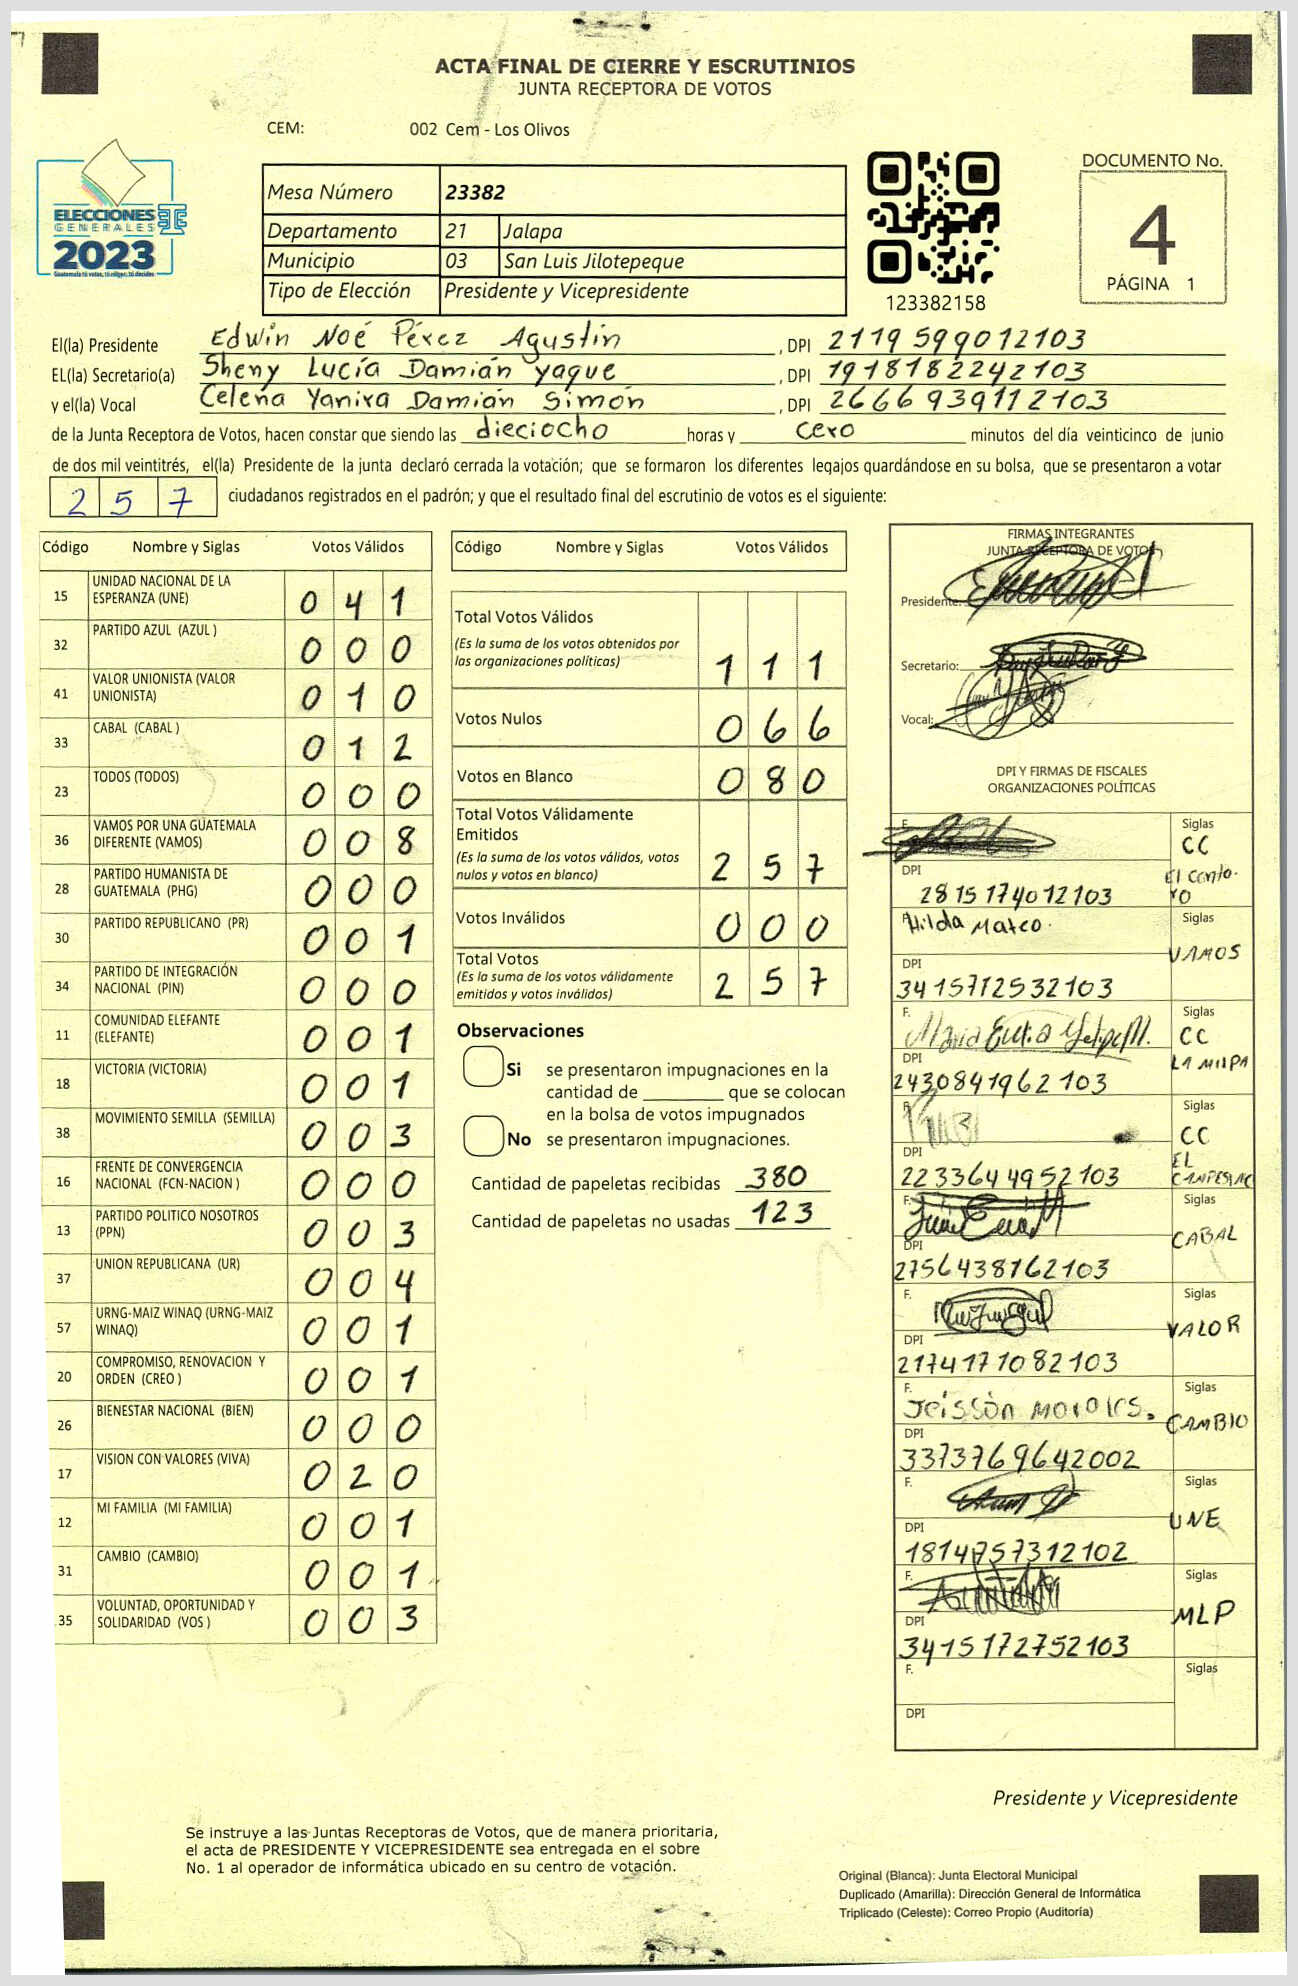 ACTA FINAL DE CIERRE Y ESCRUTINIOS
JUNTA RECEPTORA DE VOTOS
CEM: 002 Cem - Los Olivos
ELECCIONES
GENERALES
2023
Guatemala tú votas, tú eliges, tú decides
Mesa Número 23382
Departamento 21 Jalapa
Municipio 03 San Luis Jilotepeque
Tipo de Elección Presidente y Vicepresidente
123382158
DOCUMENTO No.
4
PÁGINA 1
El(la) Presidente Edwin Noé Pérez Agustín , DPI 2119 599012103
EL(la) Secretario(a) Sheny Lucía Damián Yaque , DPI 1918182242103
y el(la) Vocal Celeña Yanira Damián Simón , DPI 2666939112103
de la Junta Receptora de Votos, hacen constar que siendo las dieciocho horas y cero minutos del día veinticinco de junio
de dos mil veintitrés, el(la) Presidente de la junta declaró cerrada la votación; que se formaron los diferentes legajos guardándose en su bolsa, que se presentaron a votar
257 ciudadanos registrados en el padrón; y que el resultado final del escrutinio de votos es el siguiente:
Código Nombre y Siglas Votos Válidos
15 UNIDAD NACIONAL DE LA ESPERANZA (UNE) 041
32 PARTIDO AZUL (AZUL ) 000
41 VALOR UNIONISTA (VALOR UNIONISTA) 010
33 CABAL (CABAL ) 012
23 TODOS (TODOS) 000
36 VAMOS POR UNA GUATEMALA DIFERENTE (VAMOS) 008
28 PARTIDO HUMANISTA DE GUATEMALA (PHG) 000
30 PARTIDO REPUBLICANO (PR) 001
34 PARTIDO DE INTEGRACIÓN NACIONAL (PIN) 000
11 COMUNIDAD ELEFANTE (ELEFANTE) 001
18 VICTORIA (VICTORIA) 001
38 MOVIMIENTO SEMILLA (SEMILLA) 003
16 FRENTE DE CONVERGENCIA NACIONAL (FCN-NACION ) 000
13 PARTIDO POLITICO NOSOTROS (PPN) 003
37 UNION REPUBLICANA (UR) 004
57 URNG-MAIZ WINAQ (URNG-MAIZ WINAQ) 001
20 COMPROMISO, RENOVACION Y ORDEN (CREO ) 001
26 BIENESTAR NACIONAL (BIEN) 000
17 VISION CON VALORES (VIVA) 020
12 MI FAMILIA (MI FAMILIA) 001
31 CAMBIO (CAMBIO) 001
35 VOLUNTAD, OPORTUNIDAD Y SOLIDARIDAD (VOS ) 003
Código Nombre y Siglas Votos Válidos
Total Votos Válidos
(Es la suma de los votos obtenidos por
las organizaciones políticas) 111
Votos Nulos 066
Votos en Blanco 080
Total Votos Válidamente
Emitidos
(Es la suma de los votos válidos, votos
nulos y votos en blanco) 257
Votos Inválidos 000
Total Votos
(Es la suma de los votos válidamente
emitidos y votos inválidos) 257
Observaciones
Si se presentaron impugnaciones en la
cantidad de ________ que se colocan
en la bolsa de votos impugnados
No se presentaron impugnaciones.
Cantidad de papeletas recibidas 380
Cantidad de papeletas no usadas 123
FIRMAS INTEGRANTES
JUNTA RECEPTORA DE VOTOS
Presidente:
Secretario:
Vocal:
DPI Y FIRMAS DE FISCALES
ORGANIZACIONES POLÍTICAS
F. Siglas CC
DPI 2815174012103
Hilda Mateo. Siglas VAMOS
DPI 3415712532103
F. Siglas CC LA MILPA
DPI 2430841962103
F. Siglas CC EL
DPI 2233644952103
F. Siglas CABAL
DPI 2756438162103
F. Siglas VALOR
DPI 2174171082103
F. Jeisson Morales. Siglas CAMBIO
DPI 3373769642002
F. Siglas UNE
DPI 1814757312102
F. Siglas MLP
DPI 3415172752103
F. Siglas
DPI
Presidente y Vicepresidente
Se instruye a las Juntas Receptoras de Votos, que de manera prioritaria,
el acta de PRESIDENTE Y VICEPRESIDENTE sea entregada en el sobre
No. 1 al operador de informática ubicado en su centro de votación.
Original (Blanca): Junta Electoral Municipal
Duplicado (Amarilla): Dirección General de Informática
Triplicado (Celeste): Correo Propio (Auditoría)